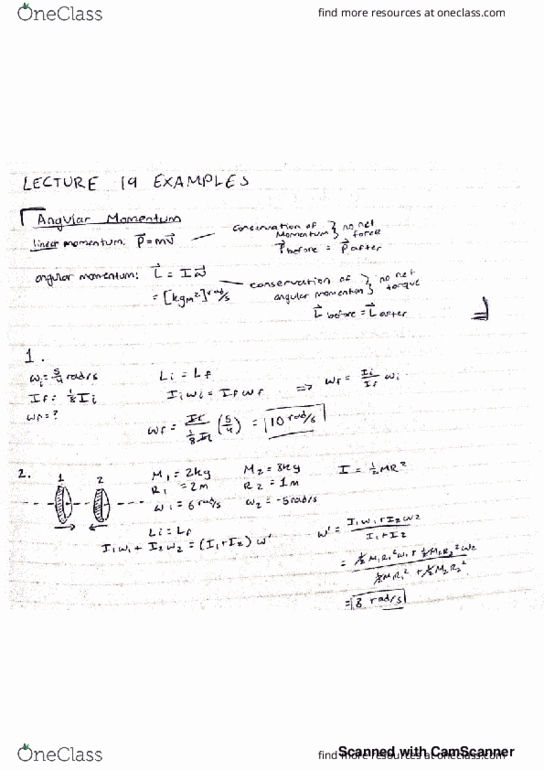 OneClass
find more resources at oneclass.com
LECTURE 19 EXAMPLES
Angular Momentum
linear momentum: P⃗ = mv⃗ — conservation of momentum } no net force
P⃗ before = P⃗ after
angular momentum: L⃗ = Iω⃗ — conservation of angular momention } no net torque
= [kgm²] rad/s
L⃗ before = L⃗ after
1.
ωi = 5/4 rad/s
Li = Lf
If = 1/8 Ii
Iiωi = Ifωf ⇒ ωf = Ii/If ωi
ωf = ?
ωf = Ii / (1/8 Ii) (5/4) = 10 rad/s
2.
1 2
M1 = 2kg M2 = 8kg I = 1/2 MR²
R1 = 2m R2 = 1m
ω1 = 6 rad/s ω2 = -5 rad/s
Li = Lf
I1ω1 + I2ω2 = (I1+I2) ω'
ω' = (I1ω1 + I2ω2) / (I1+I2)
= (1/2 M1R1²ω1 + 1/2 M2R2²ω2) / (1/2 M1R1² + 1/2 M2R2²)
rad/s
Scanned with CamScanner
OneClass
find more resources at oneclass.com